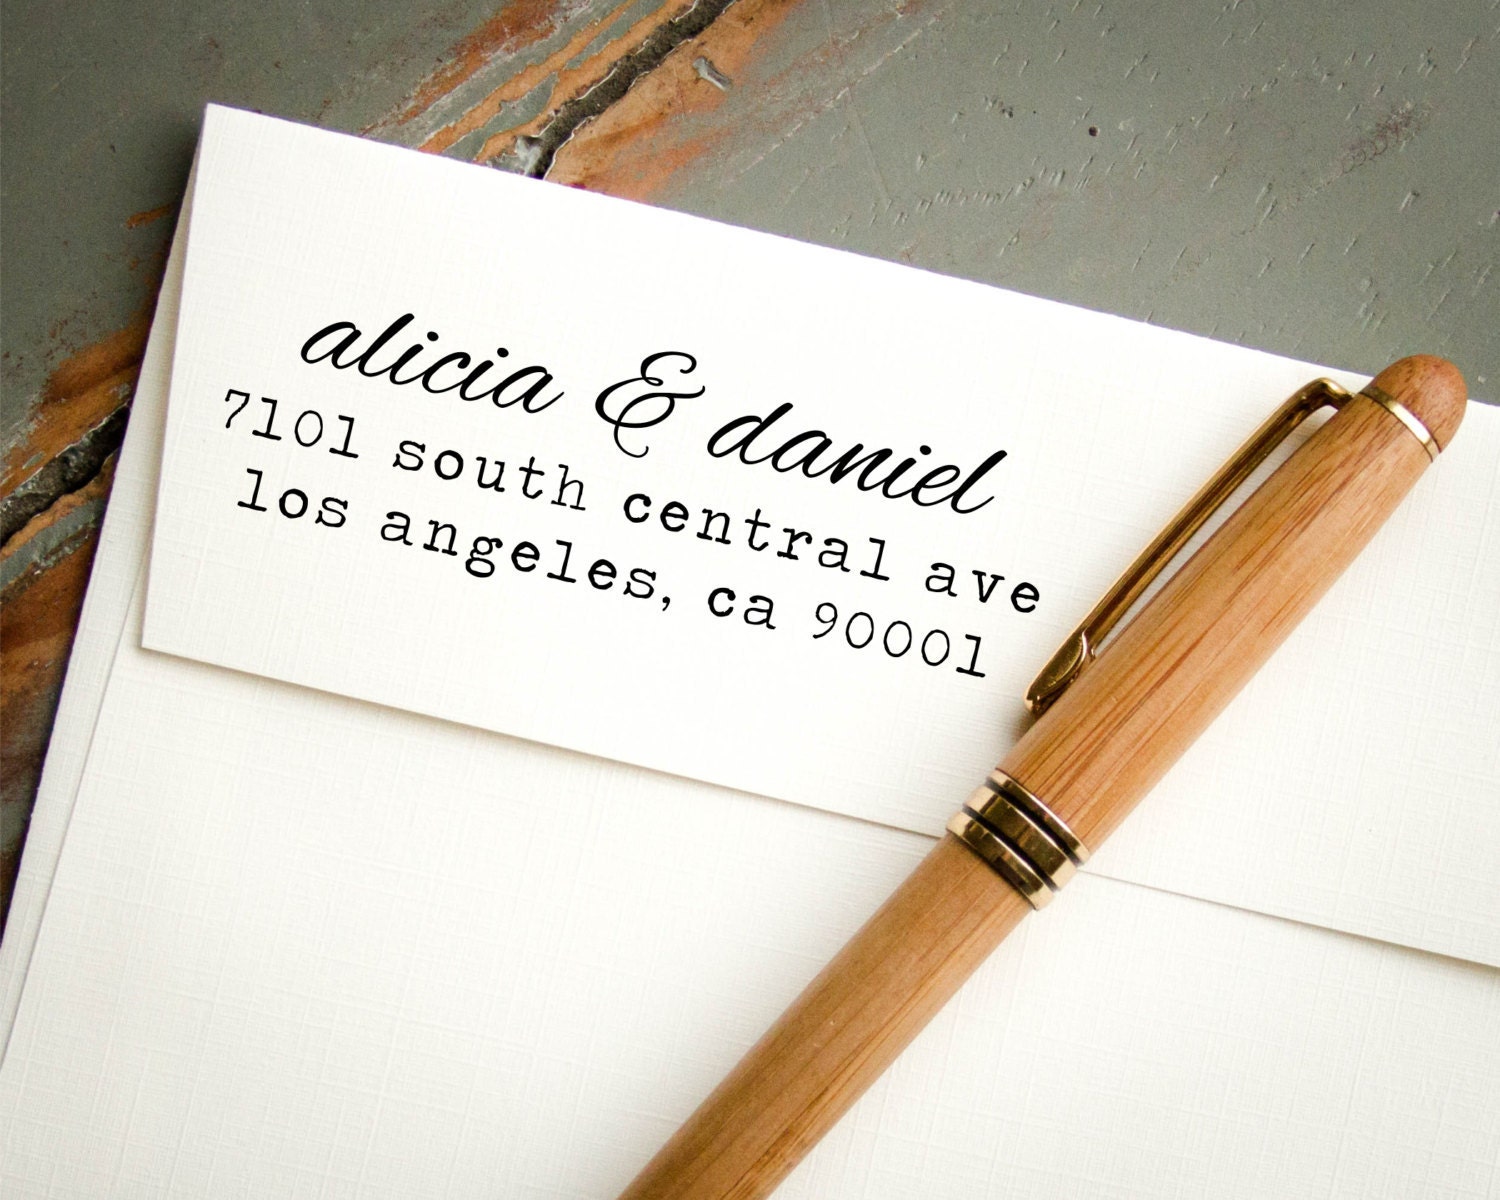 alicia & daniel
7101 south central ave
los angeles, ca 90001